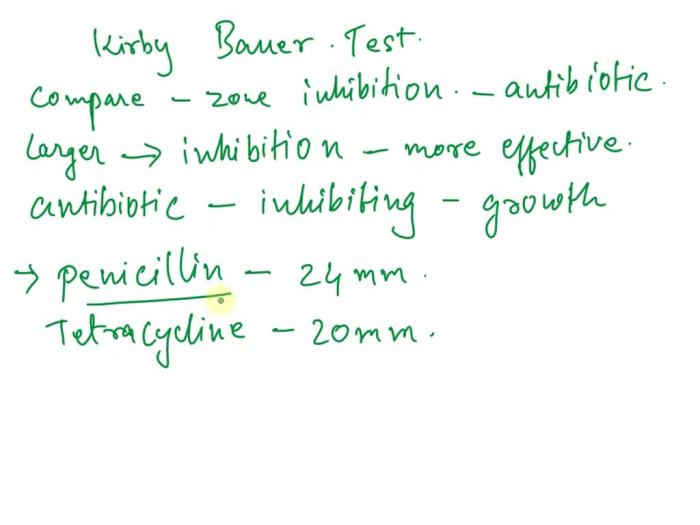 Kirby Bauer. Test.
Compare - zone inhibition. - antibiotic.
Larger → inhibition - more effective.
antibiotic - inhibiting - growth
→ penicillin - 24 mm.
Tetracycline - 20mm.